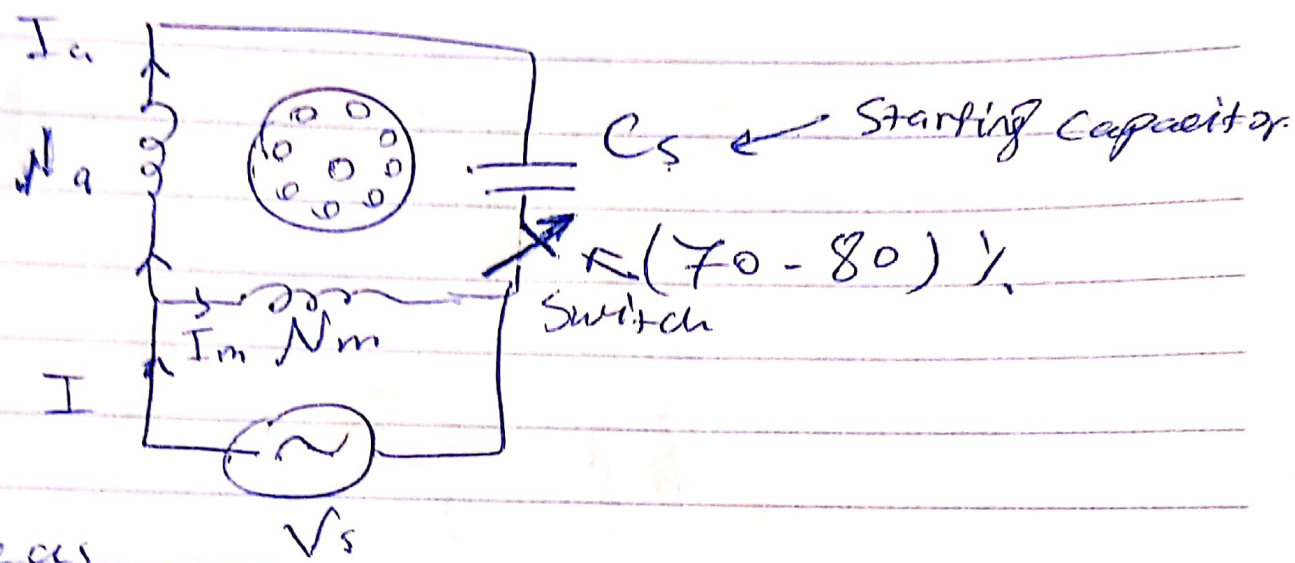 Ia
Na
Cs ← Starting Capacitor.
← (70 - 80) %
Switch
Im Nm
I
Vs